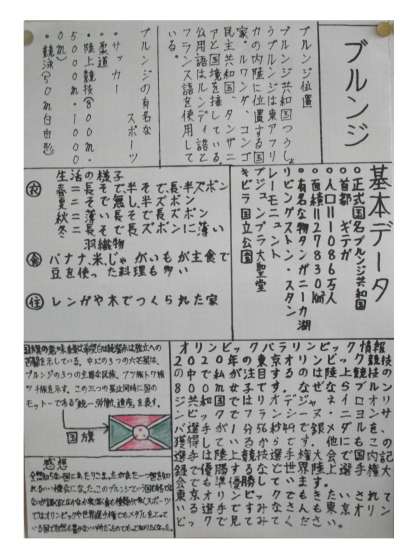 ブルンジ
ブルンジ位置
ブルンジ共和国つうしょ
うブルンジは東アフリ
カの内陸に位置する国
家。ルワンダ、コンゴ
民主共和国、タンザニ
アと国境を接している。
公用語はルンディ語と
フランス語を使用して
いる。
ブルンジの有名な
スポーツ
・サッカー
・柔道
・陸上競技
基本データ
○正式国名ブルンジ共和国
○首都 ギテガ
○人口＝1086万人
○面積＝27830km²
○有名な物タンガニーカ湖
リビングストン・スタン
レーモニュメント
ブジュンブラ大聖堂
キビラ国立公園
生活の様子
衣 春＝長そで、半そで、長・半ズボン
夏＝そで無し、半ズボン
秋＝薄い長そで長ズボン
冬＝長そで長ズボンに薄い
羽織物
食 バナナ、米、じゃがいもが主食で
豆を使った料理も多い
住 レンガや木でつくられた家
オリンピックパラリンピック情報
2020年の東京オリンピック陸上競技
の中で私が注目するのは陸上競技の
800m女子です。なぜならブルン
ジ共和国ではリオデジャネイロオリ
ンピックでフランシーヌ・ニヨンサ
バ選手が1分56秒49で銀メダルを、
獲得しているからです。他にもこの
選手は陸上競技選手権大会で国内記
録で優勝するなど世界陸上選手権大
会でも準優勝しています。
東京オリンピックでもきたいされて
いる選手ですみなさんも東京オリン
ピックで見てみてください。
ブルンジの3つの主要な民族、フツ族トワ族
ツチ族を示す。この三つの星は同時に国の
モットーである「統一、労働、進歩」を表す。
国旗
感想